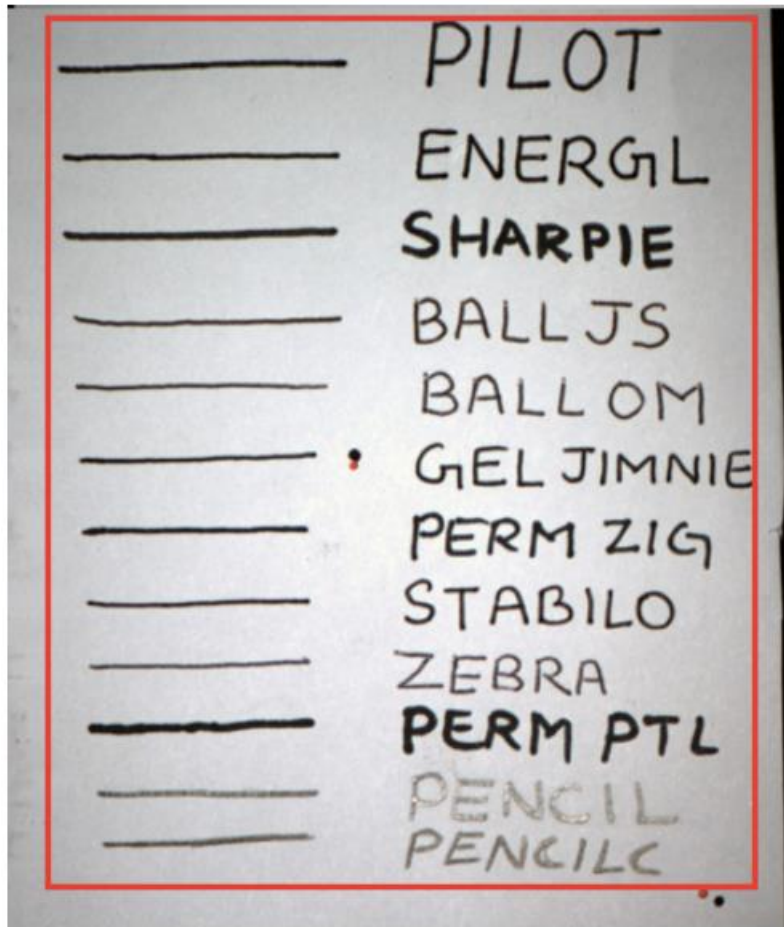 PILOT
ENERGL
SHARPIE
BALL JS
BALL OM
GEL JIMNIE
PERM ZIG
STABILO
ZEBRA
PERM PTL
PENCIL
PENCILC